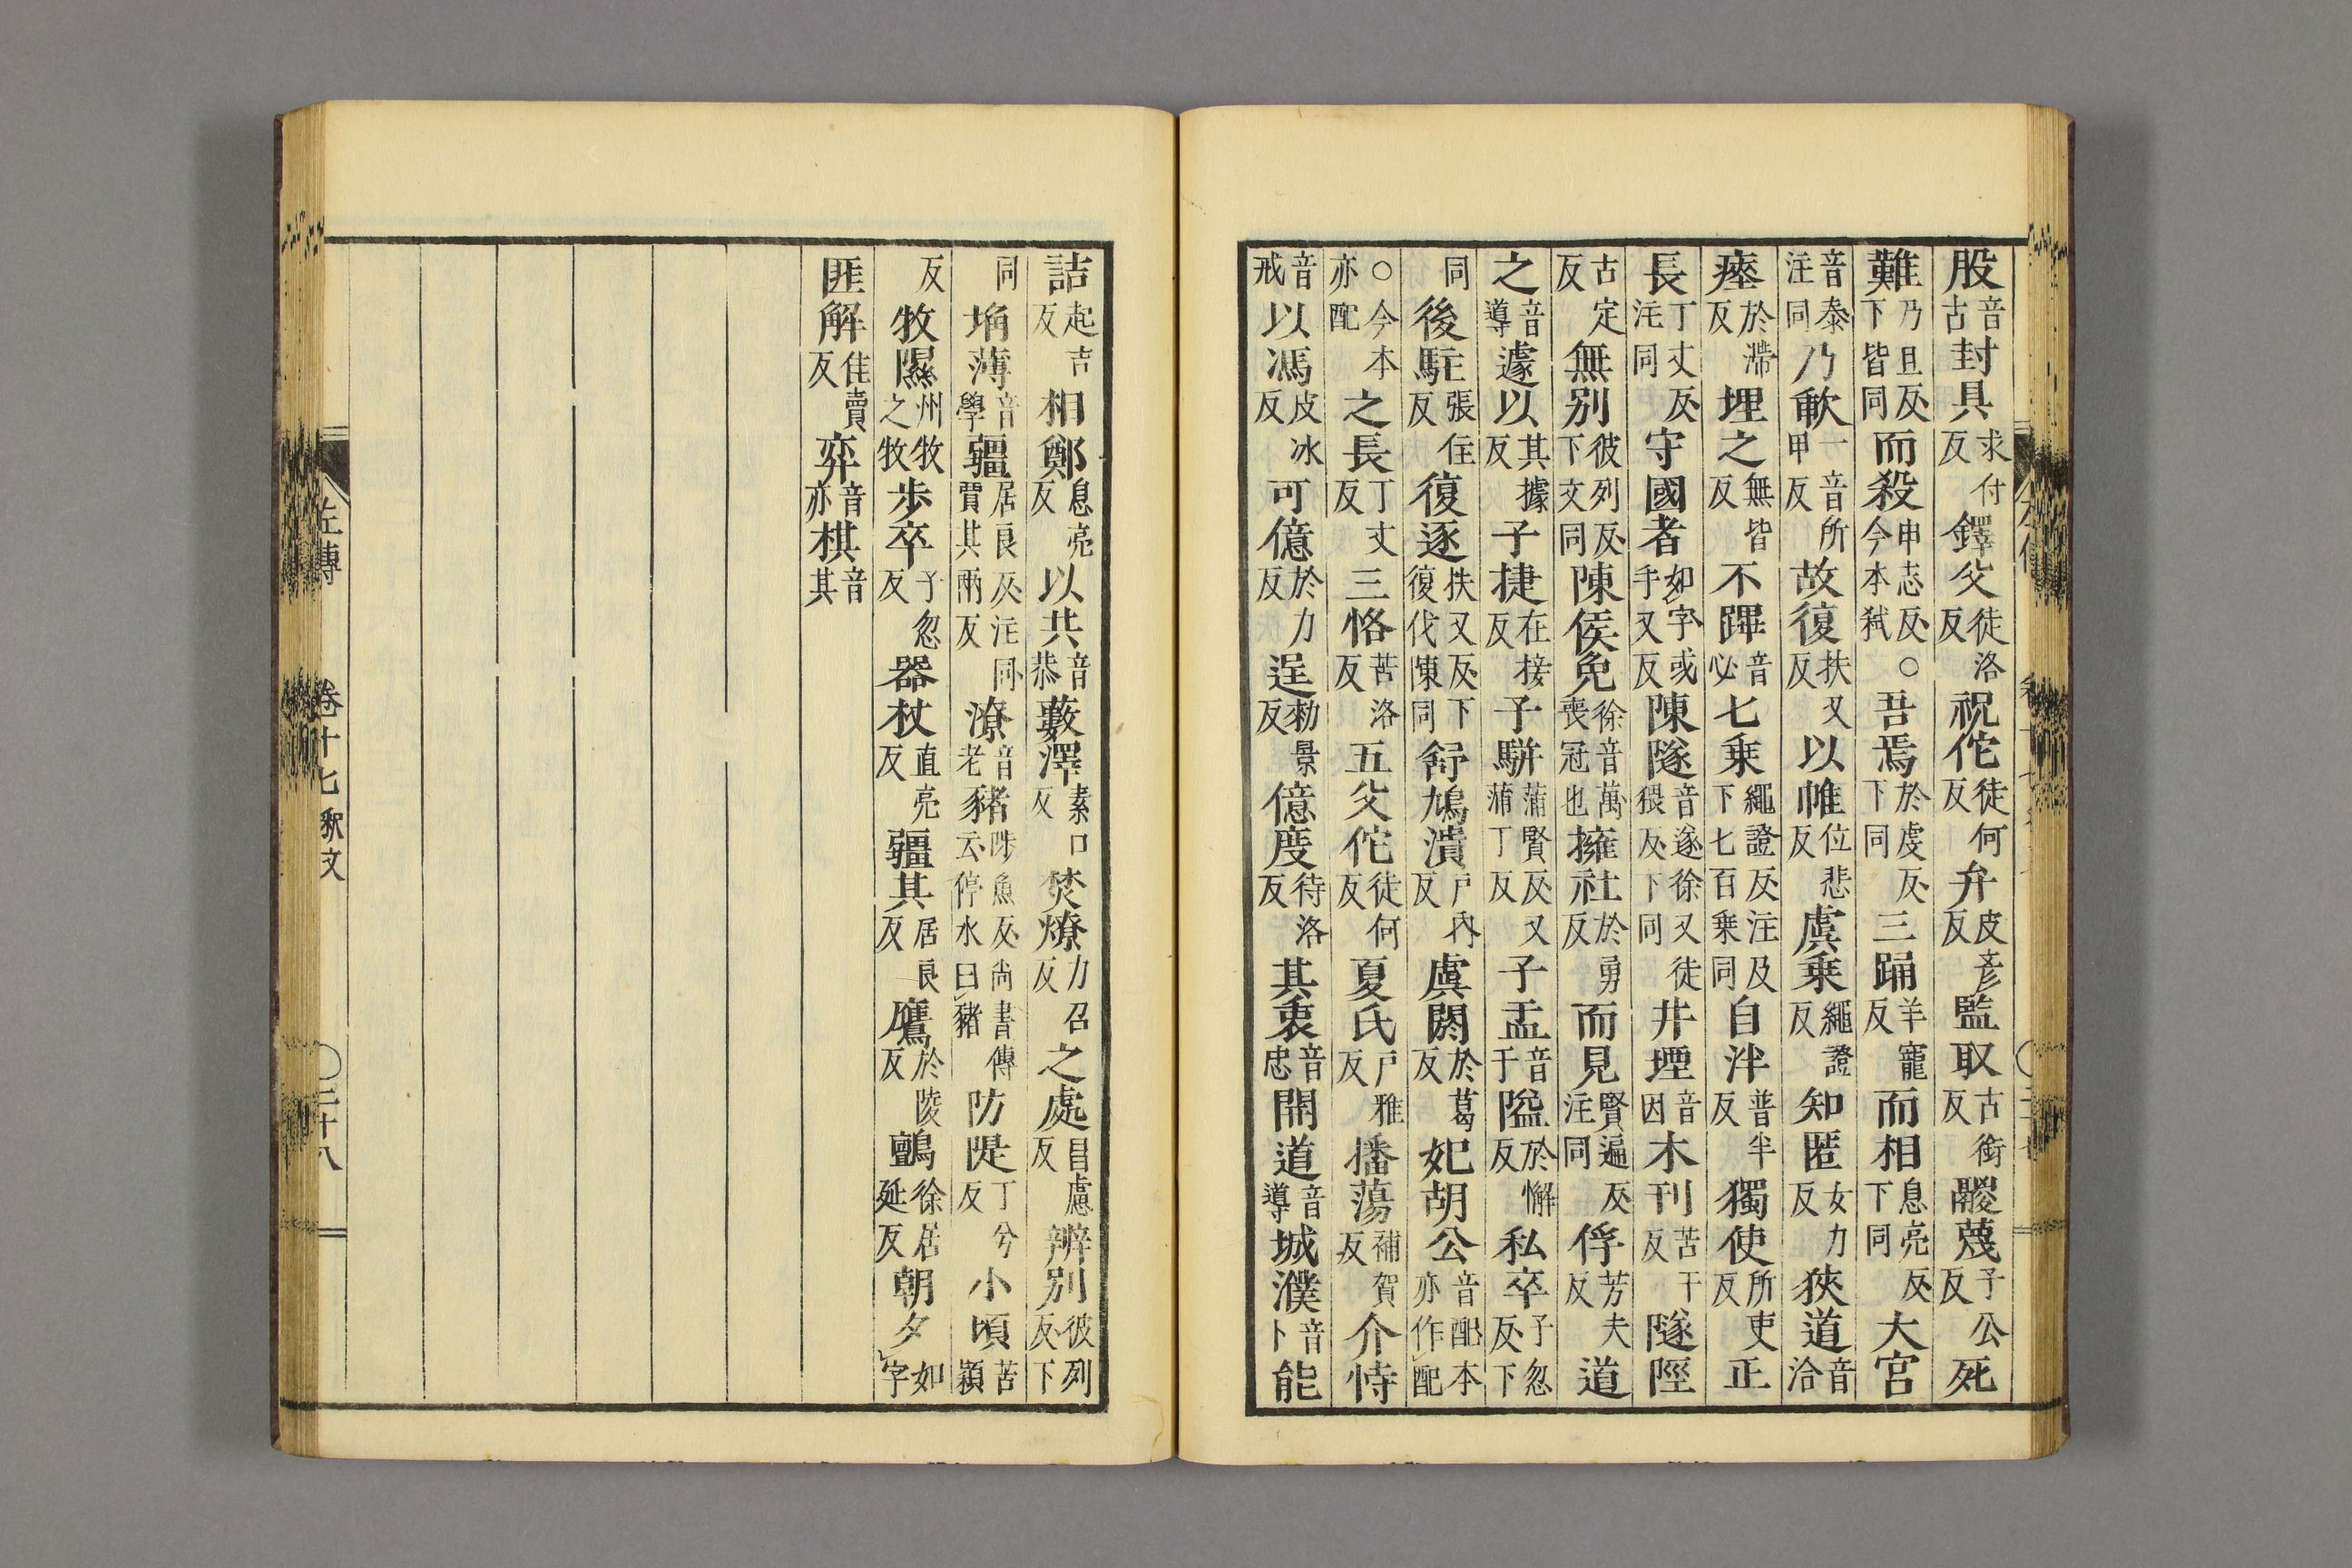 股音古封具求付反鐸父徒洛反祝佗徒何反弁皮彦反監取古銜反鬷蔑子公反死
難乃旦反下皆同而殺申志反○今本弑吾焉於虔反下同三踊羊寵反而相息亮反下同大宮
音泰注同乃歃一音所甲反故復扶又反以帷位悲反虞乗繩證反知匿女力反狹道音洽
瘞於滯反埋之無皆反不蹕音必七乗繩證反注及下七百乗同自泮普半反獨使所吏反正
長丁丈反注同守國者如字或手又反陳隧音遂徐又徒猥反下同井堙音因木刊苦干反隧陘
古定反無别彼列反下文同陳侯免徐音萬喪冠也擁社於勇反而見賢遍反注同俘芳夫反道
之音導遽以其據反子捷在接反子駢蒲賢反又蒲丁反子盂音于隘於懈反私卒子忽反下
同後駐張住反復逐扶又反下復伐陳同舒鳩潰戶內反虞閼於葛反妃胡公音配本亦作配
○今本亦配之長丁丈反三恪苦洛反五父佗徒何反夏氏戶雅反播蕩補賀反介恃
音戒以馮皮冰反可億於力反逞勑景反億度待洛反其衷音忠開道音導城濮音卜能
詰起吉反相鄭息亮反以共音恭藪澤素口反焚燎力召反之處昌慮反辨别彼列反下
同埆薄音學疆居良反注同賈其兩反潦音老豬陟魚反尚書傳云停水曰豬防隄丁兮反小頃苦潁
反牧隰州牧之牧步卒子忽反器杖直亮反疆其居良反鷹於陵反鸇徐居延反朝夕如字
匪解佳賣反弈音亦棋音其
左傳 卷十七 釈文